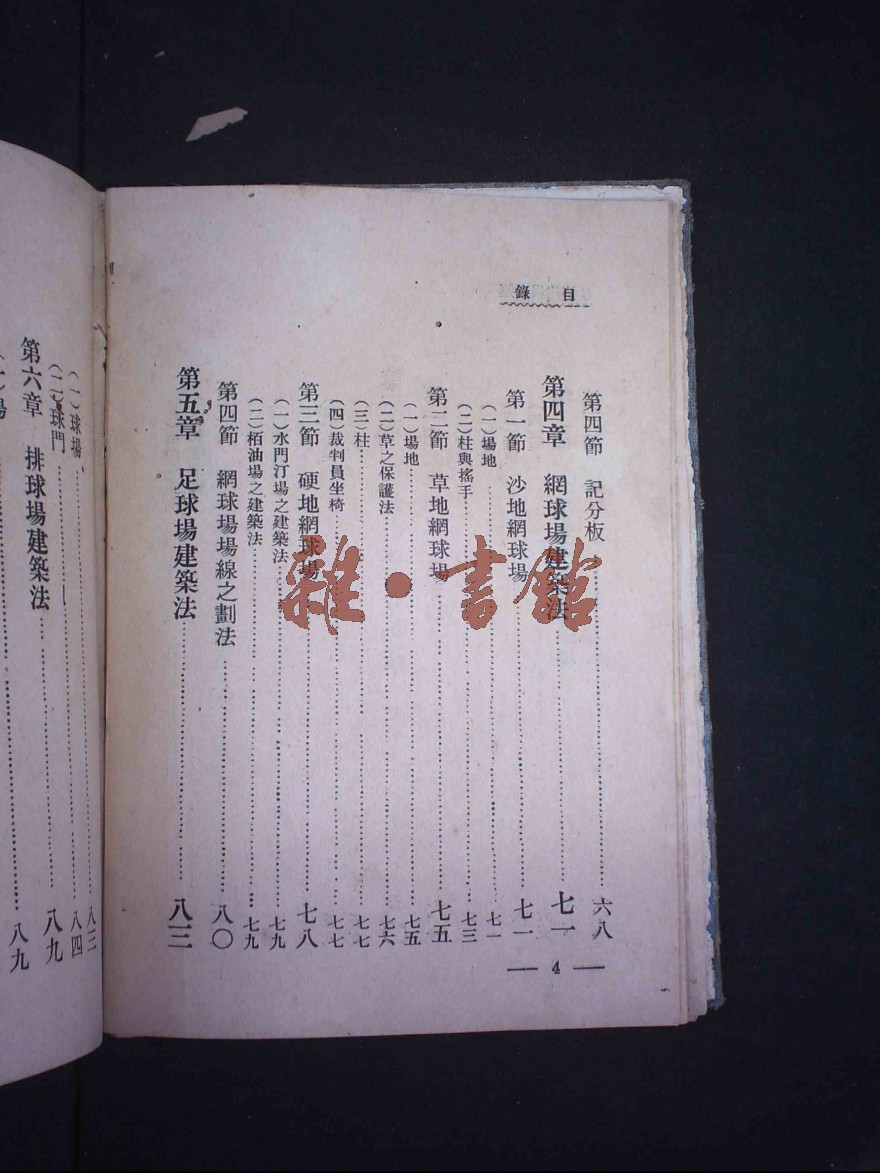 目錄
第四節 記分板……六八
第四章 網球場建築法……七一
第一節 沙地網球場……七一
(一)場地……七一
(二)柱與搖手……七三
第二節 草地網球場……七五
(一)場地……七五
(二)草之保護法……七六
(三)柱……七七
(四)裁判員坐椅……七七
第三節 硬地網球場……七八
(一)水門汀場之建築法……七九
(二)栢油場之建築法……七九
第四節 網球場場線之劃法……八〇
第五章 足球場建築法……八三
— 4 —
(一)球場……八三
(二)球門……八四
第六章 排球場建築法……八九
(一)場……八九
雜·書館